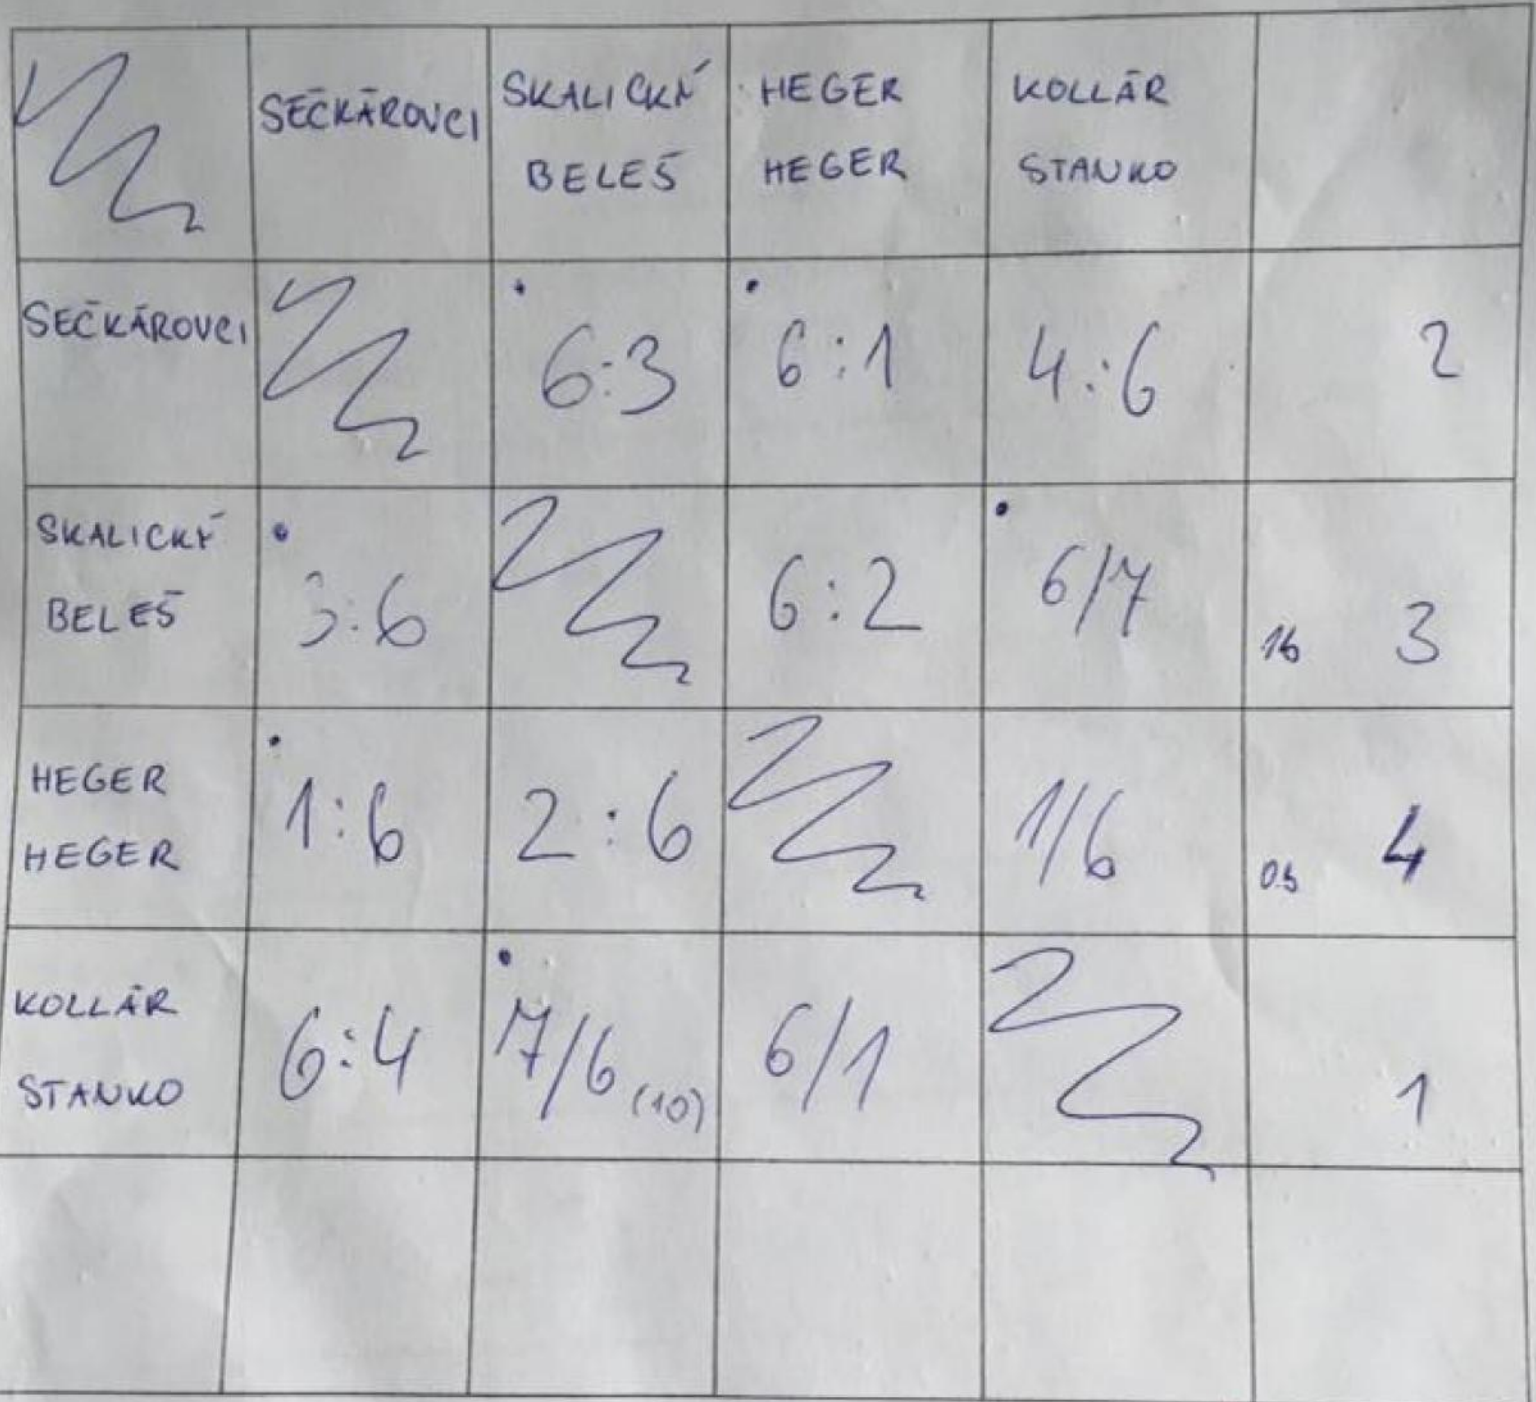 SEČKÁROVCI
SKALICKÝ
BELEŠ
HEGER
HEGER
KOLLÁR
STANKO
SEČKÁROVCI
6:3
6:1
4:6
2
SKALICKÝ
BELEŠ
3:6
6:2
6/7
3
HEGER
HEGER
1:6
2:6
1/6
4
KOLLÁR
STANKO
6:4
7/6 (10)
6/1
1